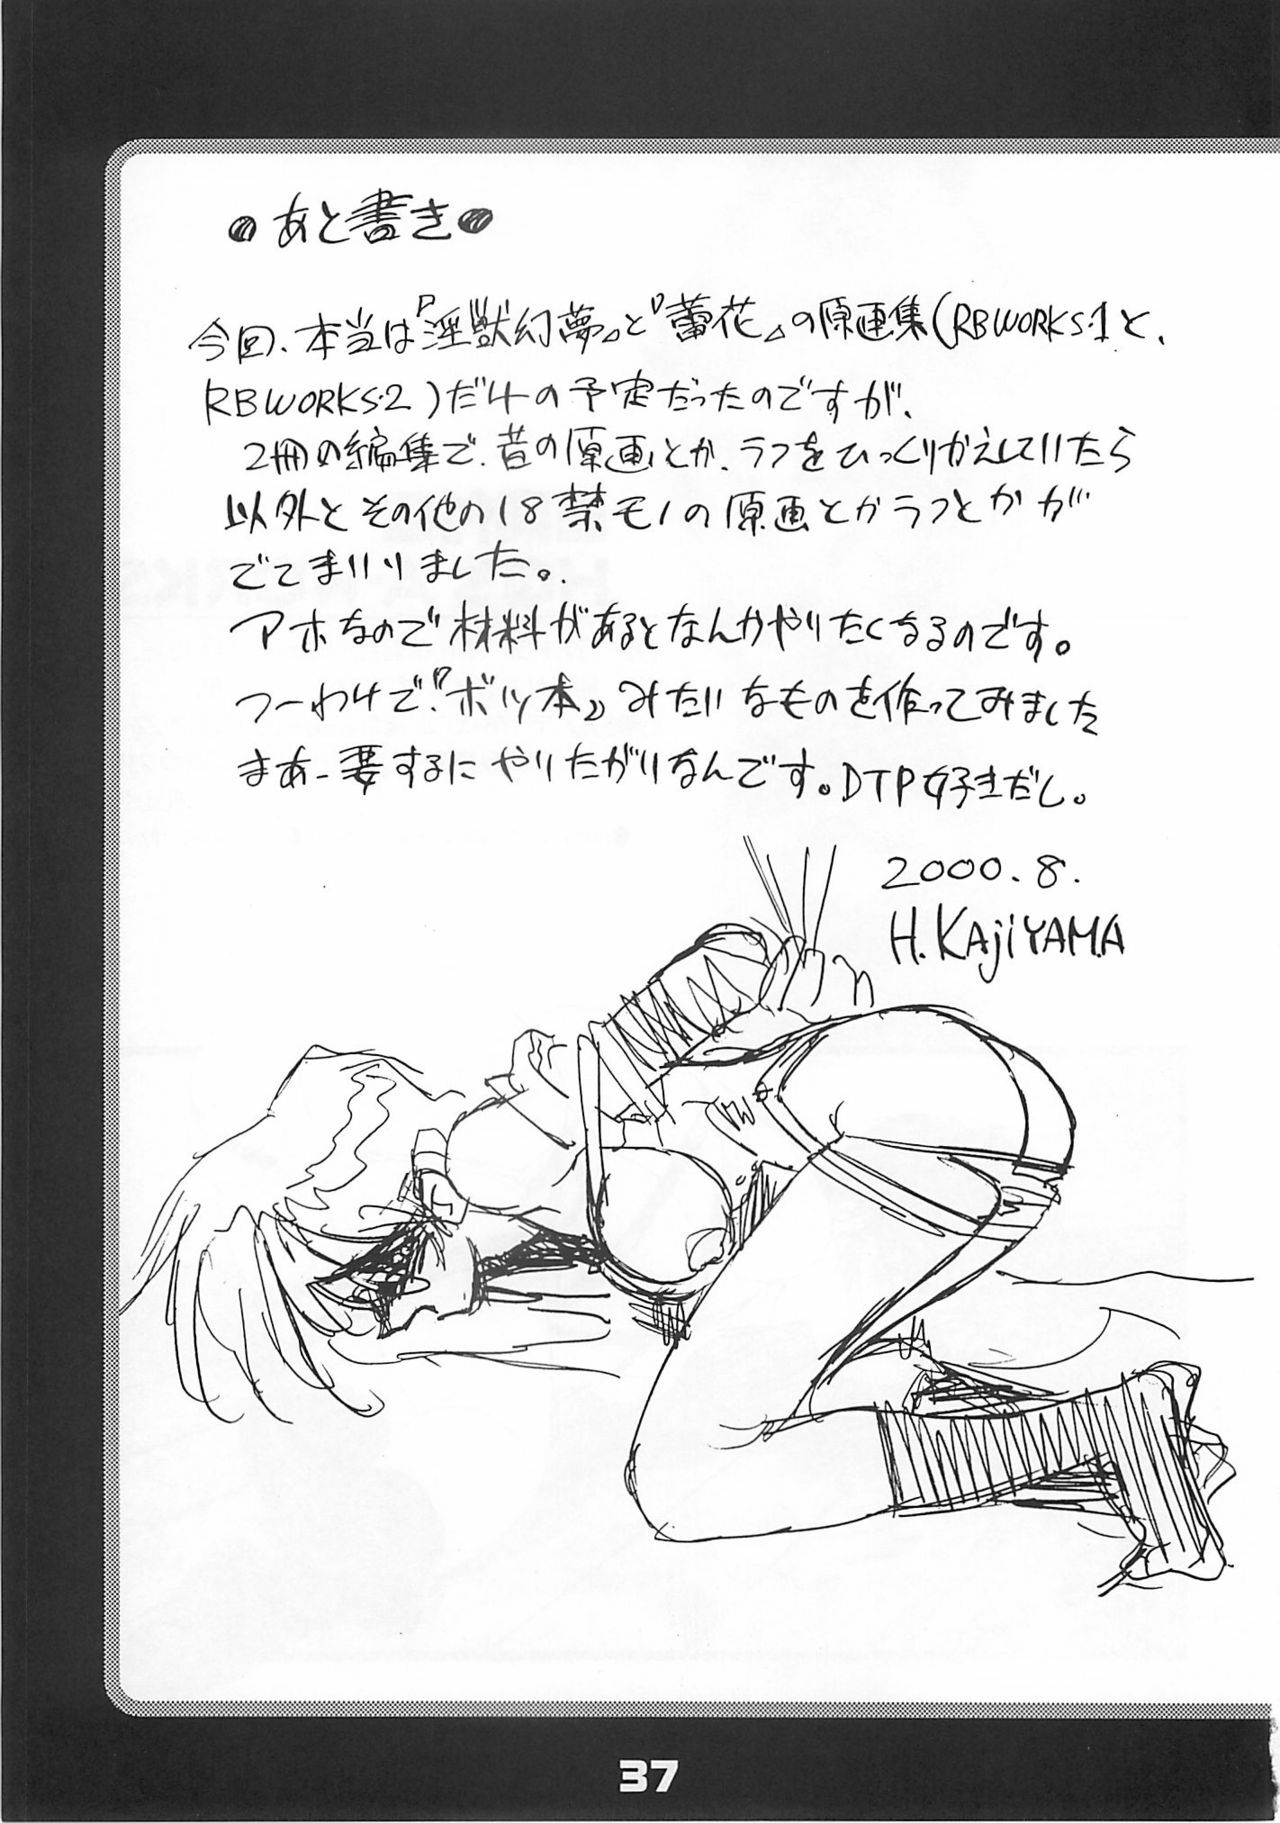 ●あと書き●
今回、本当は『淫獣幻夢』と『蕾花』の原画集(RBWORKS・1と、
RBWORKS・2)だけの予定だったのですが、
2冊の編集で、昔の原画とか、ラフをひっくりかえしていたら
以外とその他の18禁モノの原画とかラフとかが
でてまいりました。
アホなので材料があるとなんかやりたくなるのです。
つーわけで『ボツ本』みたいなものを作ってみました
まあー要するにやりたがりなんです。DTP好きだし。
2000.8.
H.KAjiYAMA
37